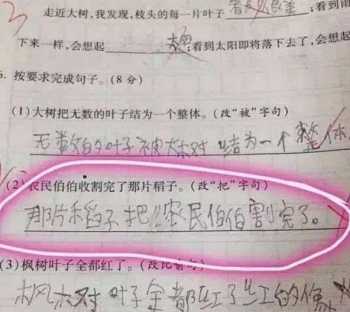 走近大树,我发现,枝头的每一片叶子
;看到雨
下来一样,会想起
;看到太阳即将落下去了,会想起
按要求完成句子。(8 分)
(1)大树把无数的叶子结为一个整体。(改“被”字句)
无数的叶子被大树结为一个整体
(2)农民伯伯收割完了那片稻子。(改“把”字句)
那片稻子把农民伯伯割完了。
(3)枫树叶子全都红了。(改比喻句)
枫树叶子全都红了红的像